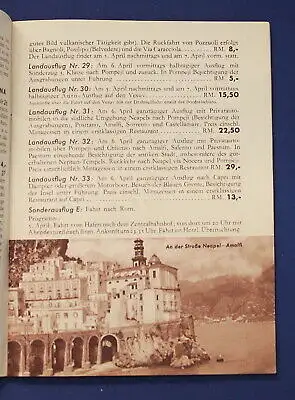 guter Bild vulkanischer Tätigkeit gibt). Die Rückfahrt von Pozzuoli erfolgt
über Bagnoli, Posilipo (Belvedere) und die Via Caracciola. RM. 8,-
Der Landausflug findet am 5. April nachmittags und am 7. April vorm. statt.
Landausflug Nr. 29: Am 6. April vormittags halbtägiger Ausflug mit
Sonderzug 3. Klasse nach Pompeji und zurück. In Pompeji Besichtigung der
Ausgrabungen unter Führung. RM. 5,-
Landausflug Nr. 30: Am 5. April nachmittags und am 7. April vormittags
halbtägiger Auto-Ausflug auf den Vesuv RM. 15,50
Landausflug Nr. 31: Am 6. April ganztägiger Ausflug mit Privatauto-
in die südliche Umgebung Neapels nach Pompeji mit Besichtigung der
Ausgrabungen, Positano, Amalfi, Sorrento und Castellamare. Preis einschl.
Mittagessen in einem erstklassigen Restaurant RM. 22,50
Landausflug Nr. 32: Am 6. April ganztägiger Ausflug mit Privatauto-
nach Pompeji und Amalfi, Salerno und Paestum. In
Paestum eingehende Besichtigung der antiken Stadt, insbesondere des
Neptun-Tempels. Rückkehr nach Neapel, via Nocera und Pompeji.
Preis einschl. Mittagessen in einem erstklassigen Restaurant RM. 29,-
Landausflug Nr. 33: Am 6. April ganztägiger Ausflug nach Capri mit
Dampfer oder großem Motorboot, Besuch der Blauen Grotte, Besichtigung
der Insel unter Führung. Preis einschl. Mittagessen in einem erstklassigen
Restaurant auf Capri RM. 13,-
Sonderausflug E: Fahrt nach Rom.
Programm:
5. April. Fahrt vom Hafen nach dem Zentralbahnhof, von dort um 20 Uhr mit
Fahrt im Hotel. Übernachtung
An der Straße Neapel-Amalfi.